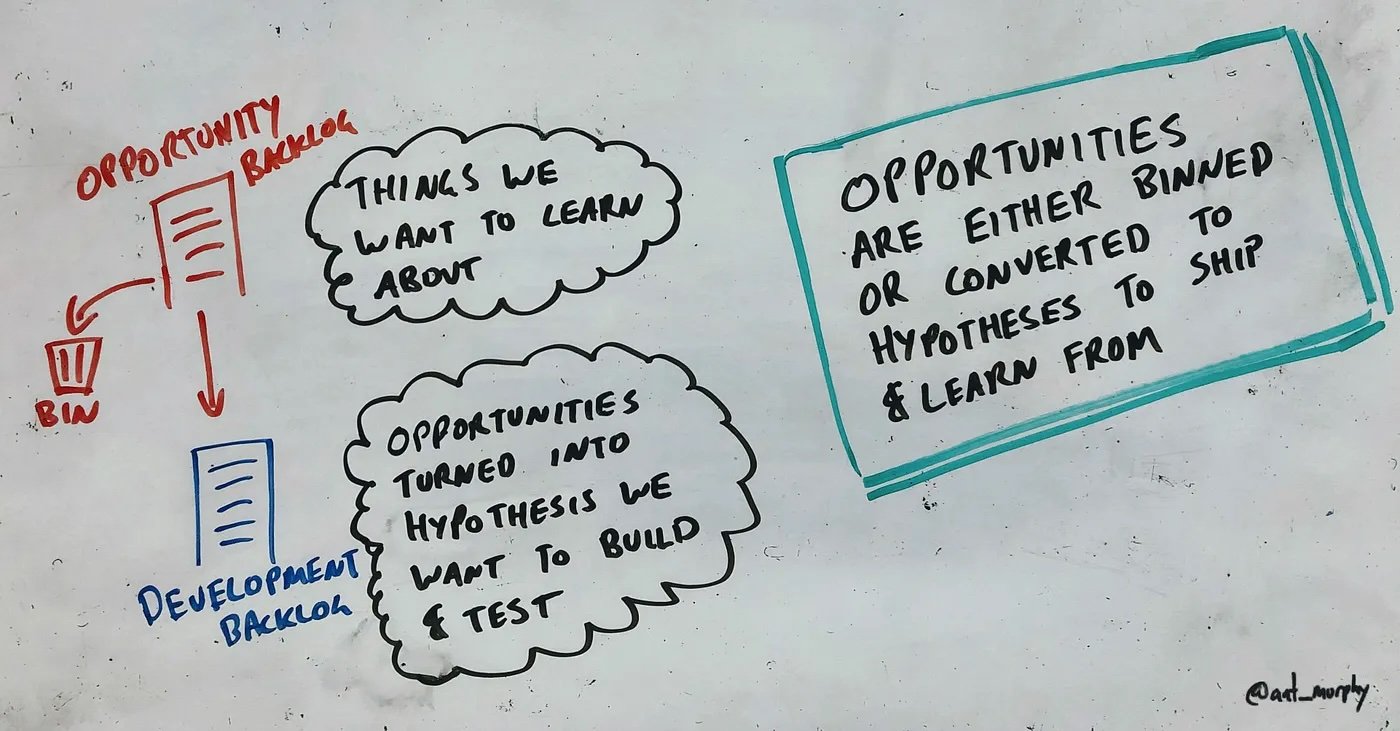 OPPORTUNITY
BACKLOG
BIN
DEVELOPMENT
BACKLOG
THINGS WE
WANT TO LEARN
ABOUT
OPPORTUNITIES
TURNED INTO
HYPOTHESIS WE
WANT TO BUILD
& TEST
OPPORTUNITIES
ARE EITHER BINNED
OR CONVERTED TO
HYPOTHESES TO SHIP
& LEARN FROM
@ant_murphy